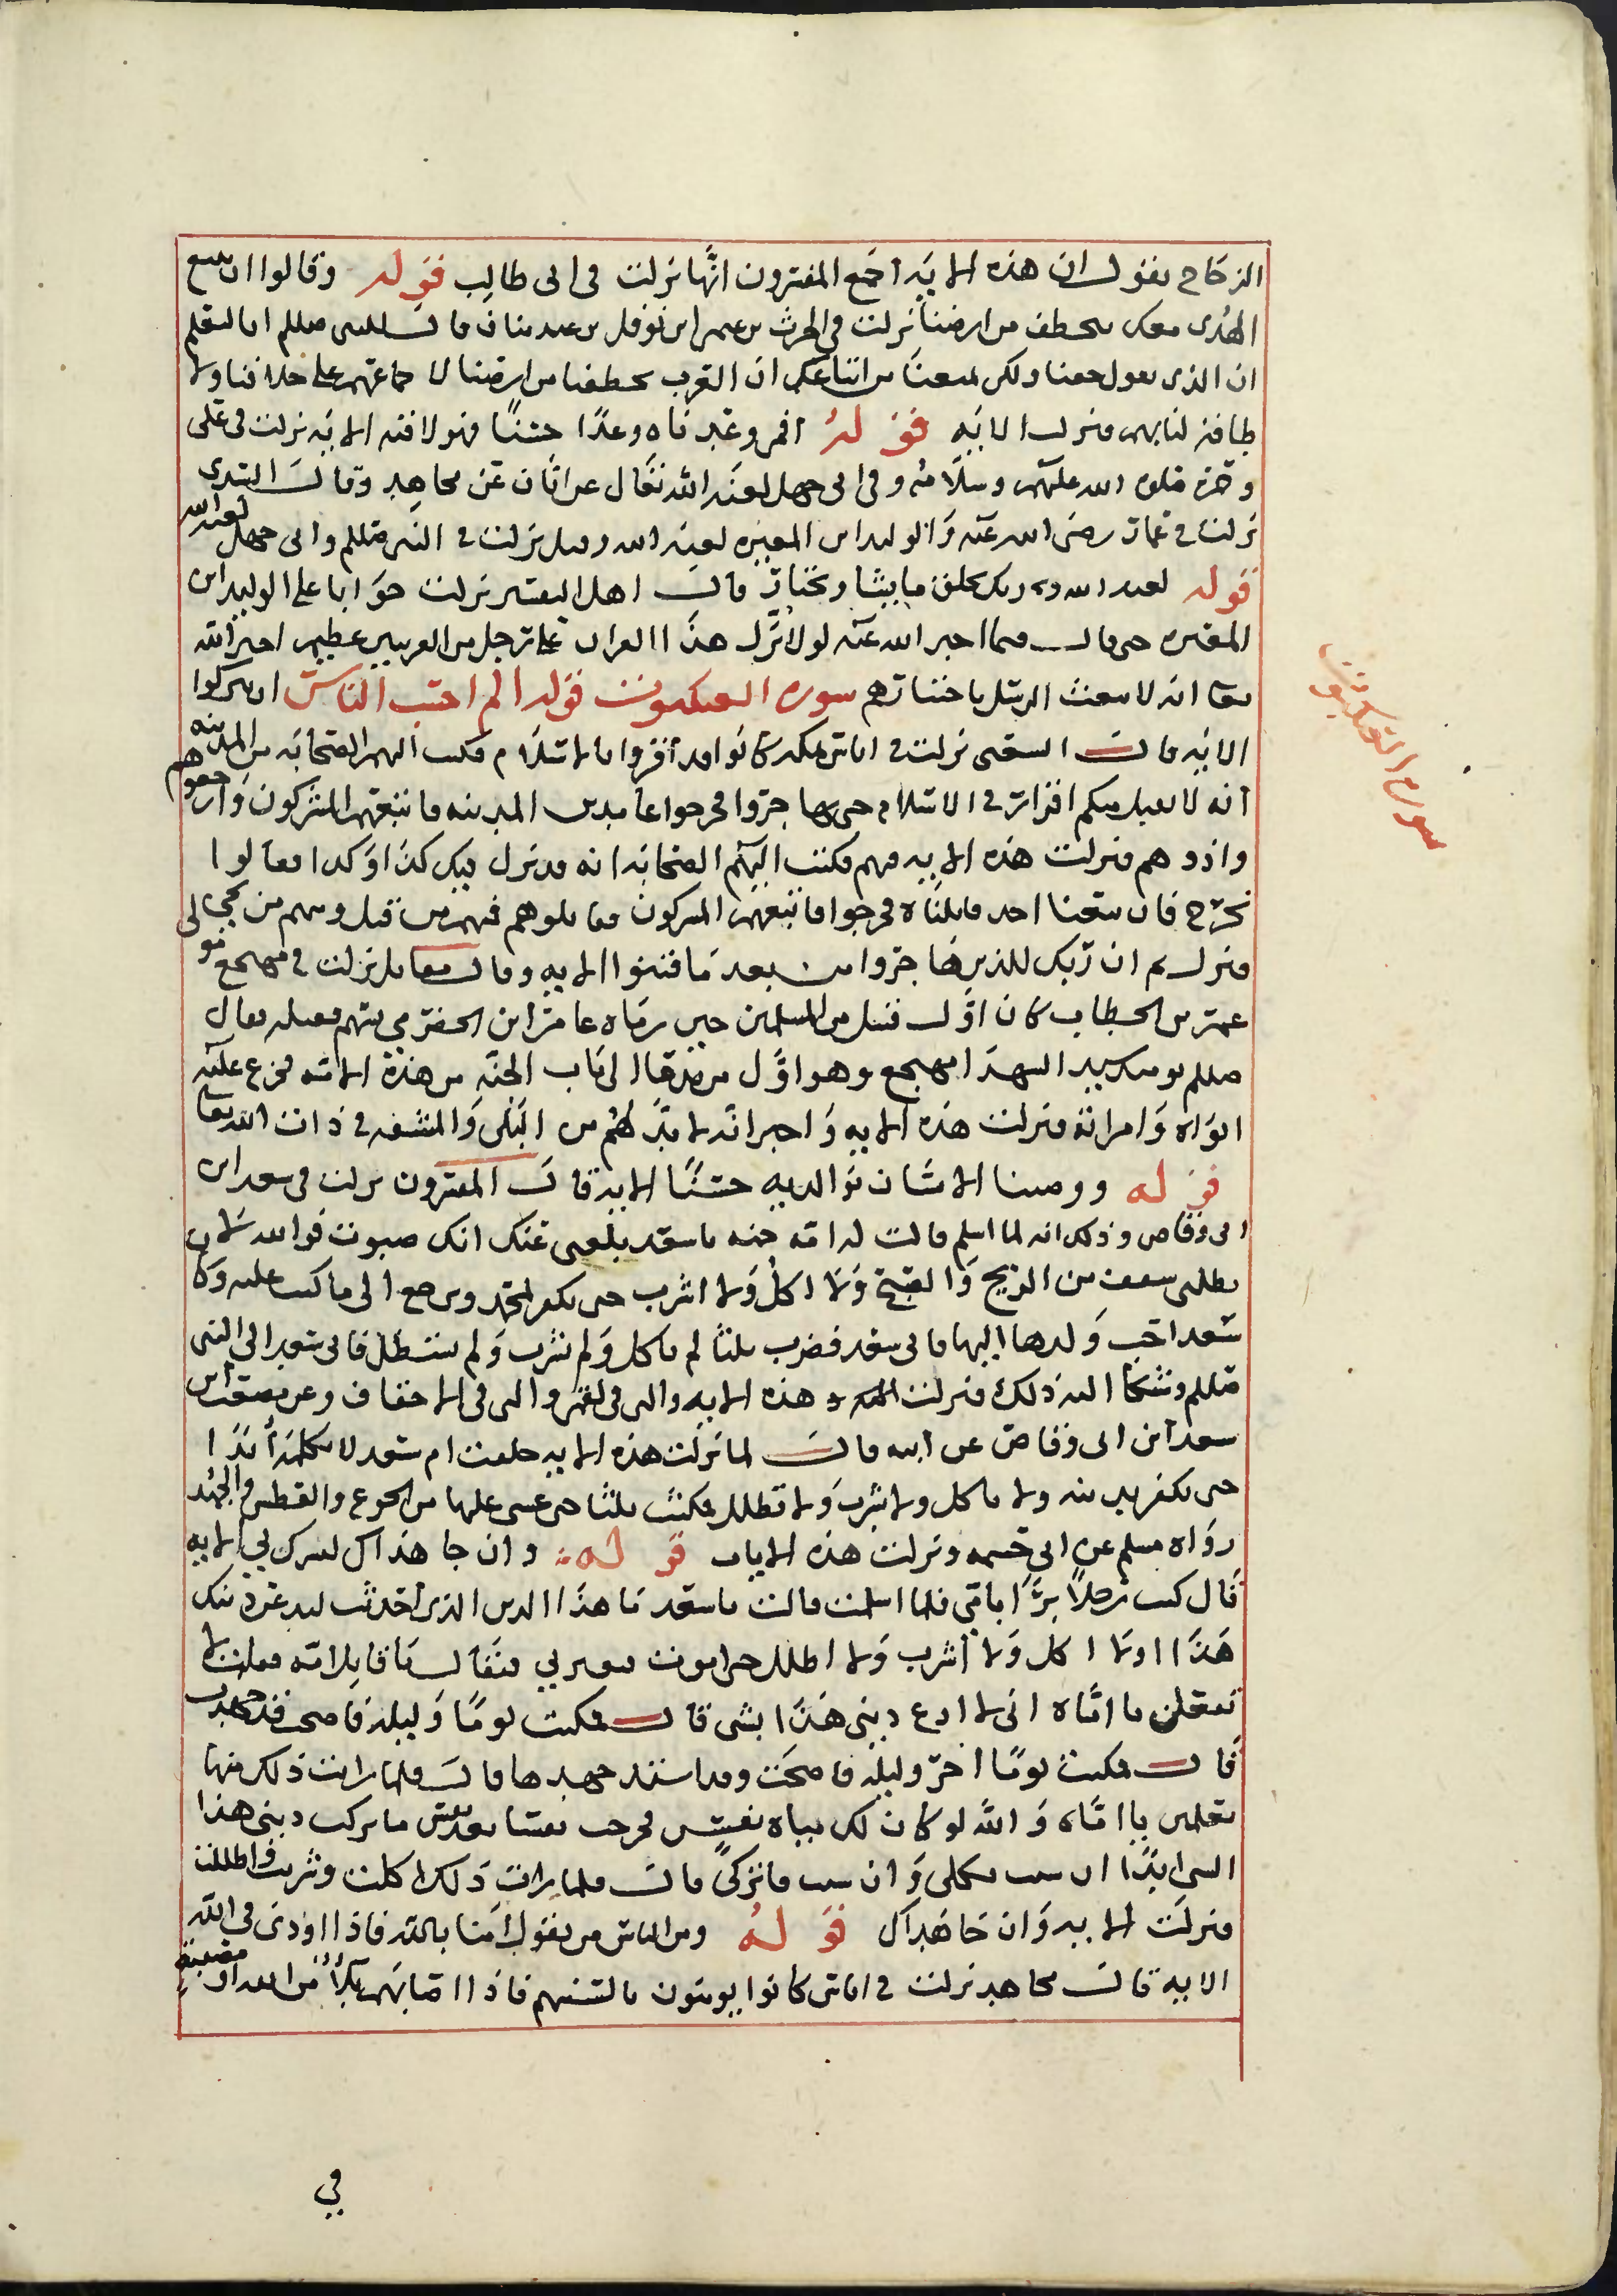 الزجاج يقول ان هذه الاية اجمع المفسرون انها نزلت في ابي طالب قوله وقالوا ان نتبع
الهدى معك نتخطف من ارضنا نزلت في الحرث بن عثمن ابن نوفل بن عبد مناف قال للنبي صللم انا لنعلم
ان الذي تقول حقا ولكن يمنعنا من اتباعك ان العرب تخطفنا من ارضنا لاجماعهم على خلافنا ولا
طاقة لنا بهم فنزلت الاية قوله افمن وعدناه وعدًا حسنًا فهو لاقيه الاية نزلت في علي
وحمزة صلوة الله عليهم وسلامه وفي ابي جهل لعنه الله تعال عن ابان عن مجاهد وقال السدي
نزلت في عمار رضى الله عنه والوليد ابن المغيرة لعنه الله وقيل نزلت في النبي صللم وابي جهل لعنه الله
قوله لعنه الله وربك يخلق ما يشا ويختار قال اهل التفسير نزلت جوابا على الوليد ابن
المغيرة حين قال فيما اخبر الله عنه لولا نزل هذا القران على رجل من القريتين عظيم اخبر الله
تعا انه لا يبعث الرسل باختيارهم سورة العنكبوت قوله الم احسب الناس ان يتركوا
الاية قال الشعبي نزلت في اناس بمكة كانوا قد اقروا بالاسلام فكتب اليهم الصحابة من المدينة
انه لا يقبل منكم اقرار في الاسلام حتى تهاجروا فخرجوا عامدين المدينة فاتبعهم المشركون وارجعوهم
واذوهم فنزلت هذه الاية فيهم فكتب اليهم الصحابة انه قد نزل فيكم كذا وكذا فقالوا
نخرج فان تبعنا احد قاتلناه فخرجوا فاتبعهم المشركون فقاتلوهم فمنهم من قتل ومنهم من نجي الى
فنزل ثم ان ربك للذين هاجروا من بعد ما فتنوا الاية وقال مقاتل نزلت في مهجع مولى
عمر بن الخطاب كان اول قتيل من المسلمين حين رماه عامر ابن الحضرمي بسهم فقتله فقال
صللم يومئذ سيد الشهدا مهجع وهو اول من يدعا الى باب الجنة من هذه الامة فجزع عليه
ابواه وامراته فنزلت هذه الاية واخبر انه لا بد لهم من البلى والمشقة في ذات الله تعا
قوله ووصينا الانسان بوالديه حسنًا الاية قال المفسرون نزلت في سعد ابن
ابي وقاص وذلك انه لما اسلم قالت له امه حمنه يا سعد بلغني عنك انك صبوت فوالله لا
يظلني سقف من الريح والضح ولا اكل ولا اشرب حتى تكفر بمحمد وترجع الى ما كنت عليه وكان
سعد احب ولدها اليها فابى سعد فصبرت ثلثا لم تاكل ولم تشرب ولم تستظل فاتى سعد الى النبي
صللم وشكا اليه ذلك فنزلت هذه الاية والتي في لقمن والتي في الاحقاف وعن مصعب ابن
سعد ابن ابي وقاص عن ابيه قال لما نزلت هذه الاية حلفت ام سعد لا تكلمه ابدا
حتى تكفر بدينه ولا تاكل ولا تشرب ولا تظلل فمكثت ثلثا حتى غشي عليها من الجوع والعطش والجهد
رواه مسلم عن ابي خيثمه ونزلت هذه الايات قوله وان جاهداك لتشرك بي الاية
قال كنت رجلًا برًا بامي فلما اسلمت قالت يا سعد ما هذا الدين الذي احدثت لتدعن دينك
هذا او لا اكل ولا اشرب ولا اظلل حتى اموت فتعير بي فيقال يا قاتل امه فقلت لا
تفعلن يا اماه اني لا ادع ديني هذا بشي قال فمكثت يومًا وليله فاصبحت قد جهدت
قال فمكثت يومًا اخر وليله فاصبحت وقد اشتد جهدها قال فلما رايت ذلك منها
تعلمين يا اماه والله لو كان لك مياه نفس فخرجت نفسا بعد نفس ما تركت ديني هذا
الشي ابدًا ان شيت فكلي وان شيت فاتركي قال فلما رات ذلك اكلت وشربت واظللت
فنزلت الاية وان جاهداك قوله ومن الناس من يقول امنا بالله فاذا اوذي في الله
الاية قال مجاهد نزلت في اناس كانوا يومنون بالسنتهم فاذا اصابهم بلاء من الله او مصيبة
سورة العنكبوت
في